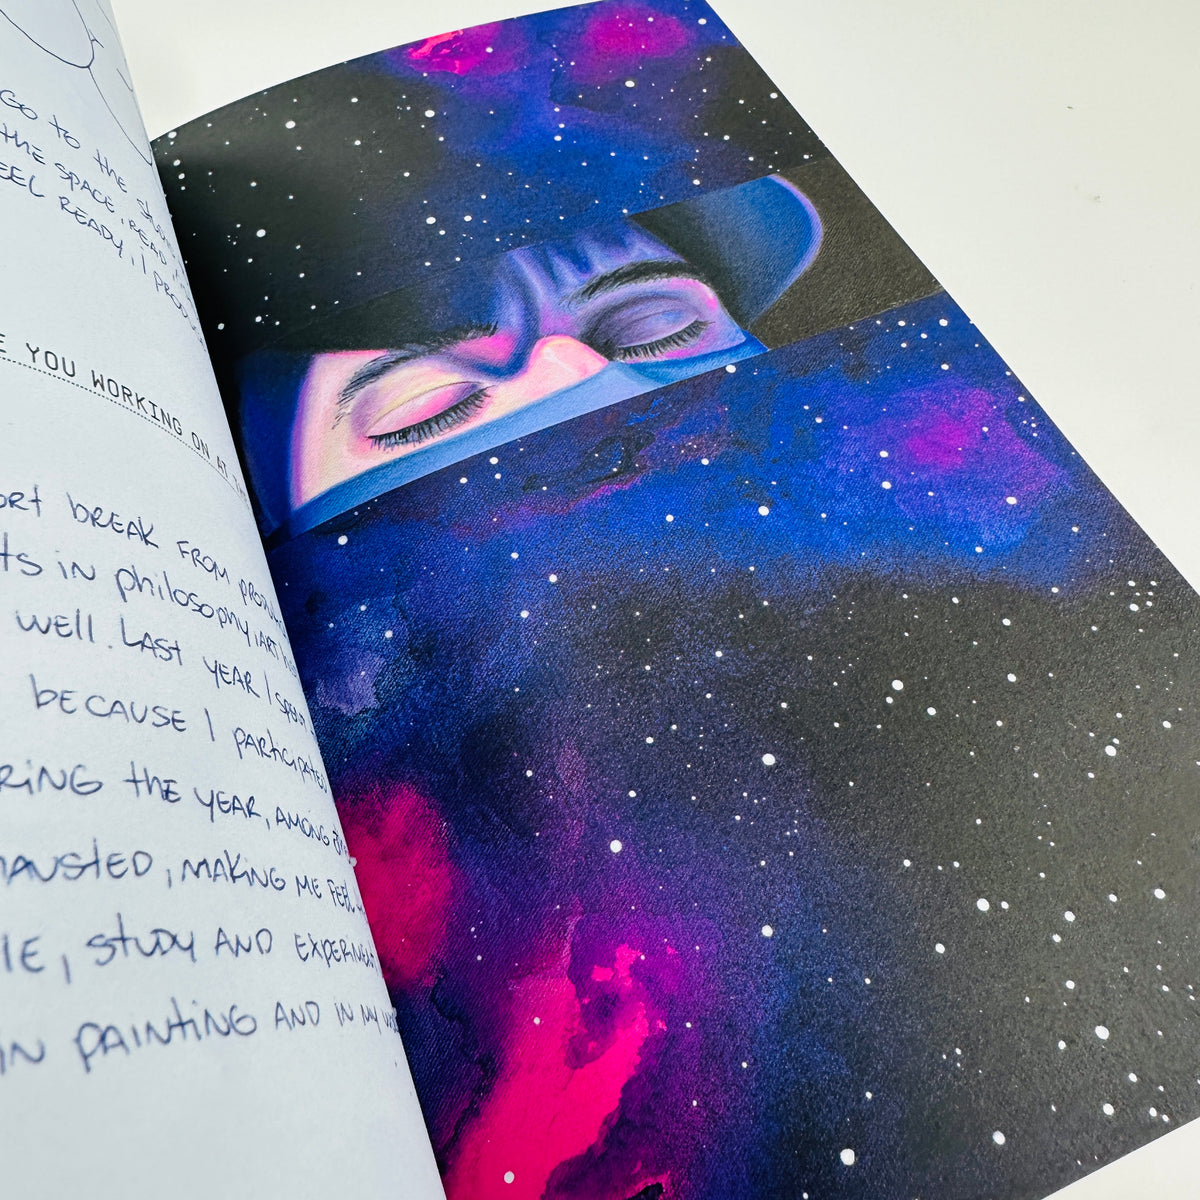 GO to the
the SPACE, READ
EEL READY, I
E YOU WORKING ON AT
ORt bREAK FROM
ts IN philosophy, ARt
WEll. LASt YEAR I SPENt
bECAUSE I PARtICIPAtED
RING thE YEAR, AMONG
HAUStED, MAKING ME FEEL
IE, StUDY AND EXPERIMENt
IN PAINtING AND IN MY